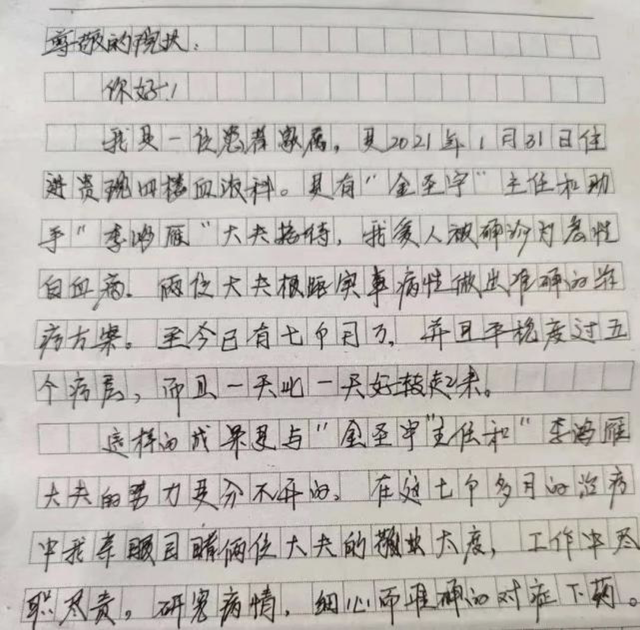 尊敬的院长:
你好!
我是一位患者家属,是2021年1月31日住
进贵院四楼血液科。是有“金圣宇”主任和助
手“李鸿雁”大夫接待,我爱人被确诊为急性
白血病。两位大夫根据实事病性做出准确的治
疗方案。至今已有七个月了,并且平稳度过五
个疗层,而且一天比一天好转起来。
这样的成果是与“金圣宇”主任和“李鸿雁
大夫的努力是分不开的,在这七个多月的治病
中我亲眼目睹俩位大夫的敬业太度,工作中尽
职尽责。研究病情,细心而准确的对症下药。